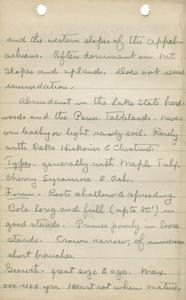 and the western slopes of the Appal-
achians. Often dominant on mt.
slopes and uplands. Does not resist
inundation.
Abundant in the Lake State hard-
woods and the Penn. Tablelands. never
on leachy or light sandy soil. Rarely
with Oaks Hickories & Chestnut.
Types. generally with Maple Tulip
Cherry Sycamore & Ash.
Form. Roots shallow & spreading.
Bole long and full (up to 80') in
good stands. Prunes poorly in loose
stands. Crown narrow, of numerous
short branches.
Growth. great size & age. Max.
300-400 yrs. Heart rot when mature,